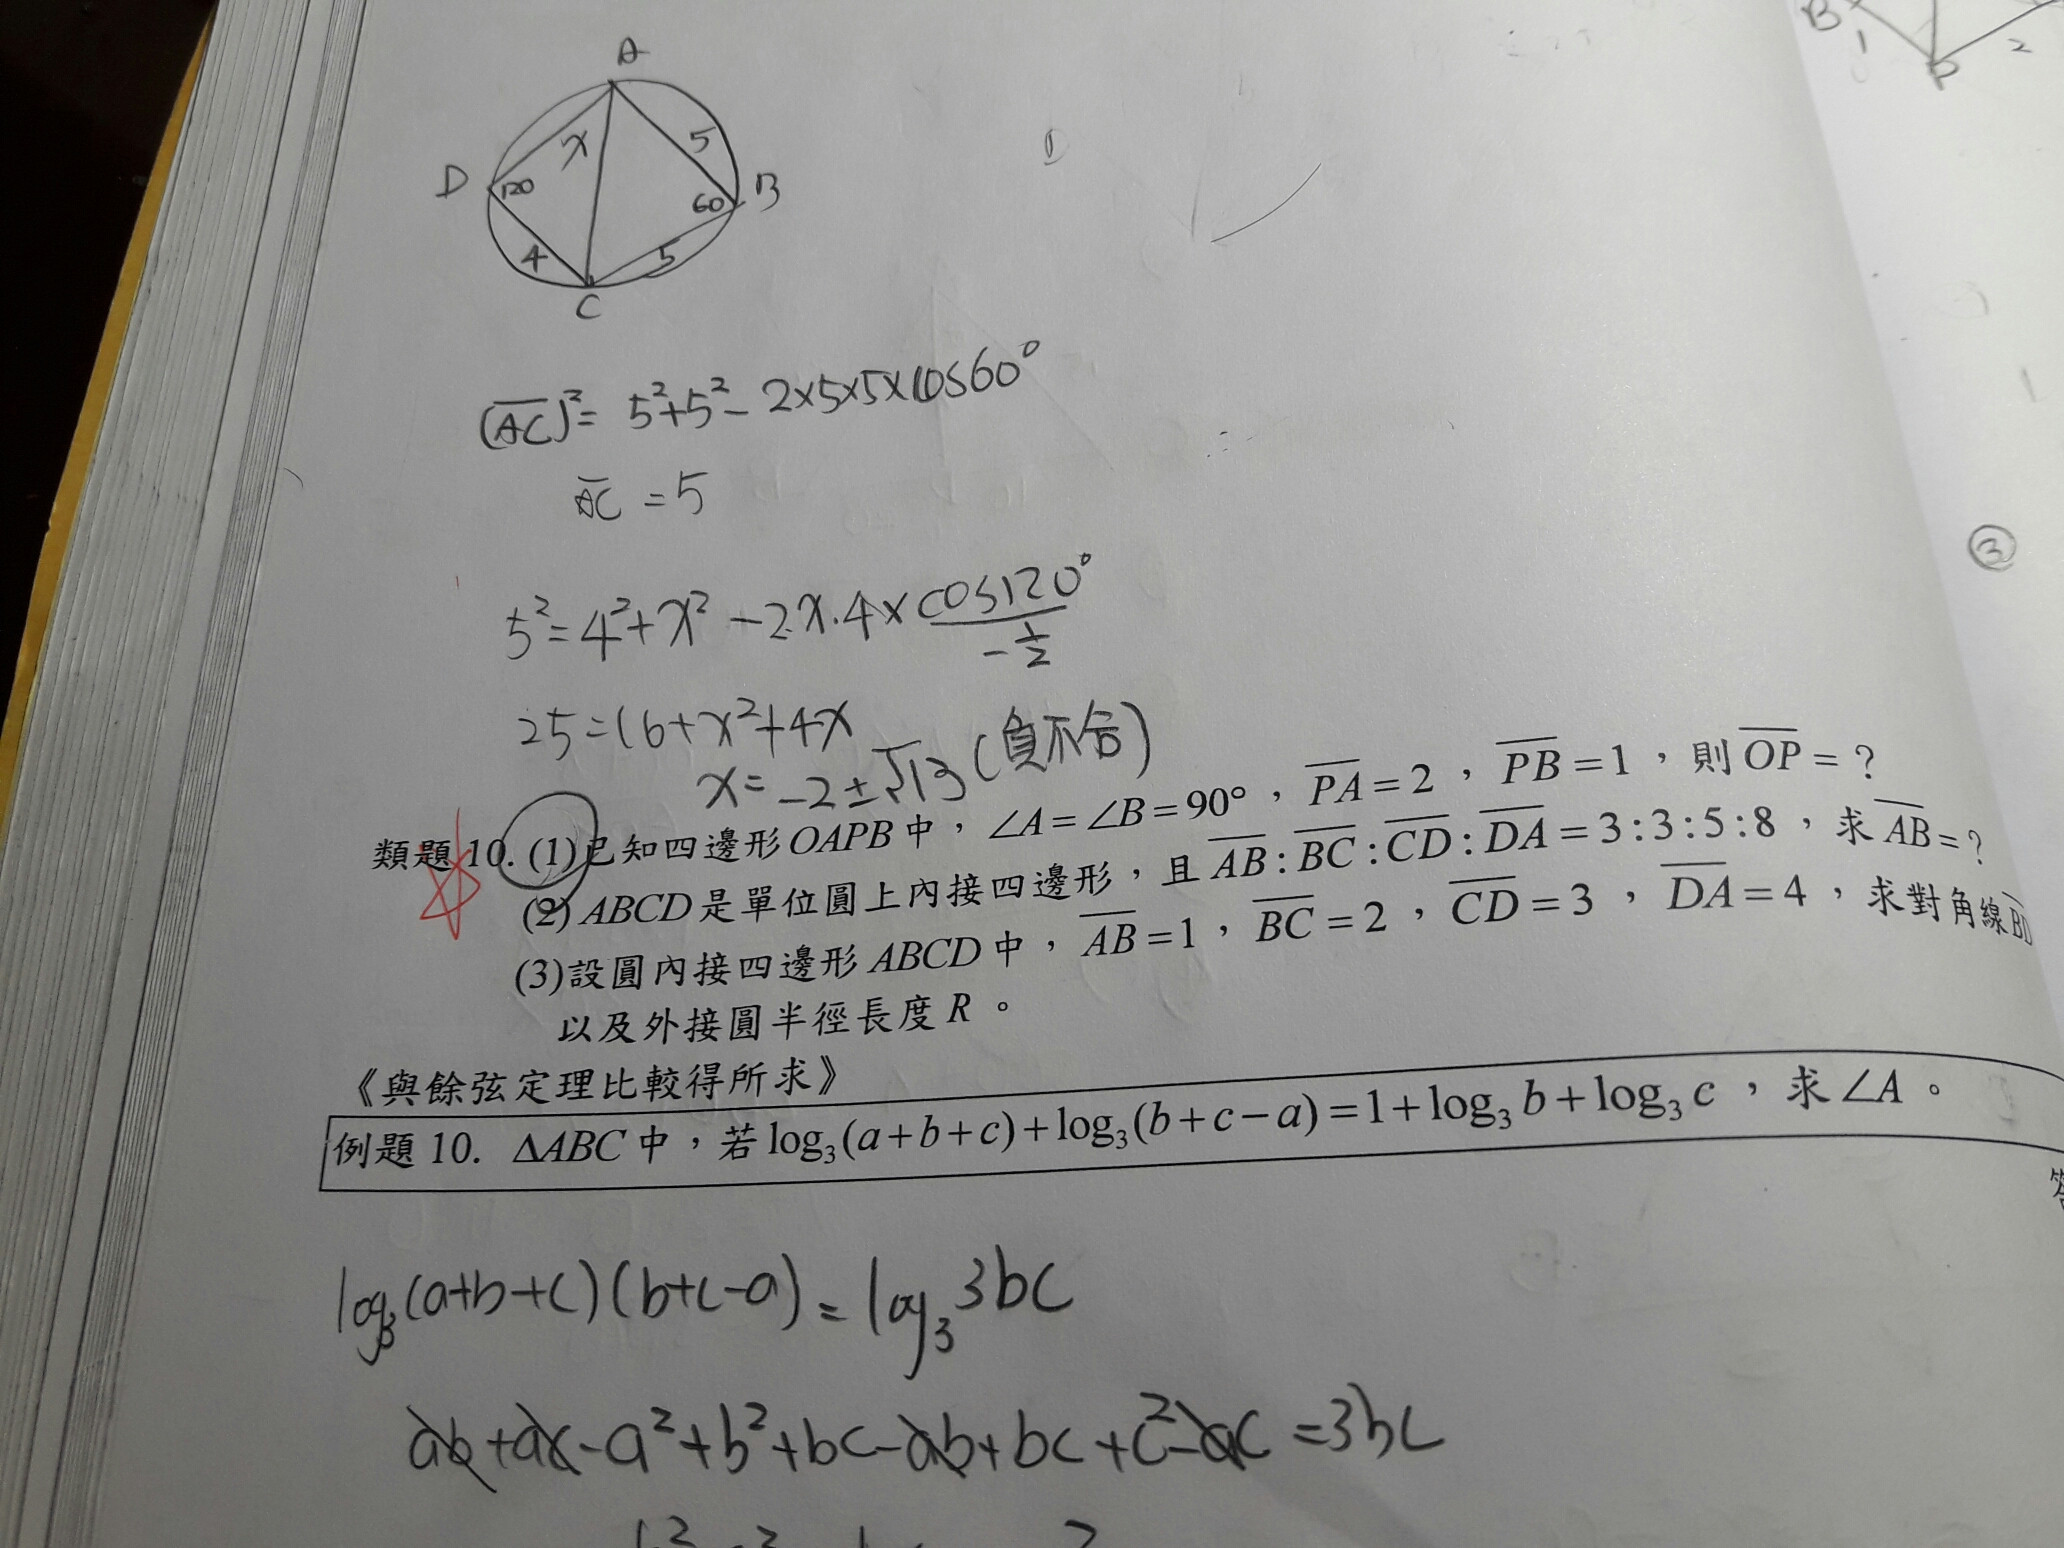 A
B
1
2
P
x
5
D
120
60
B
4
5
C
(AC)²= 5²+5²- 2×5×5×cos60°
AC = 5
③
5²=4²+x² -2x·4×cos120°
-1/2
25=16+x²+4x
x= -2±√13 (負不合)
類題10. (1)已知四邊形OAPB中，∠A=∠B=90°，PA=2，PB=1，則OP=？
(2) ABCD是單位圓上內接四邊形，且AB:BC:CD:DA=3:3:5:8，求AB=？
(3)設圓內接四邊形ABCD中，AB=1，BC=2，CD=3，DA=4，求對角線BD
以及外接圓半徑長度R。
《與餘弦定理比較得所求》
例題10. ΔABC中，若log₃(a+b+c)+log₃(b+c−a)=1+log₃b+log₃c，求∠A。
log₃(a+b+c)(b+c-a)=log₃3bc
ab+ac-a²+b²+bc-ab+bc+c²-ac=3bc